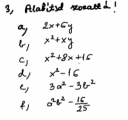 3, Alakítsd szorzattá!
a, 2x+6y
b, x²+xy
c, x²+8x+16
d, x²-16
e, 3a²-3b²
f, a²b²-16/25